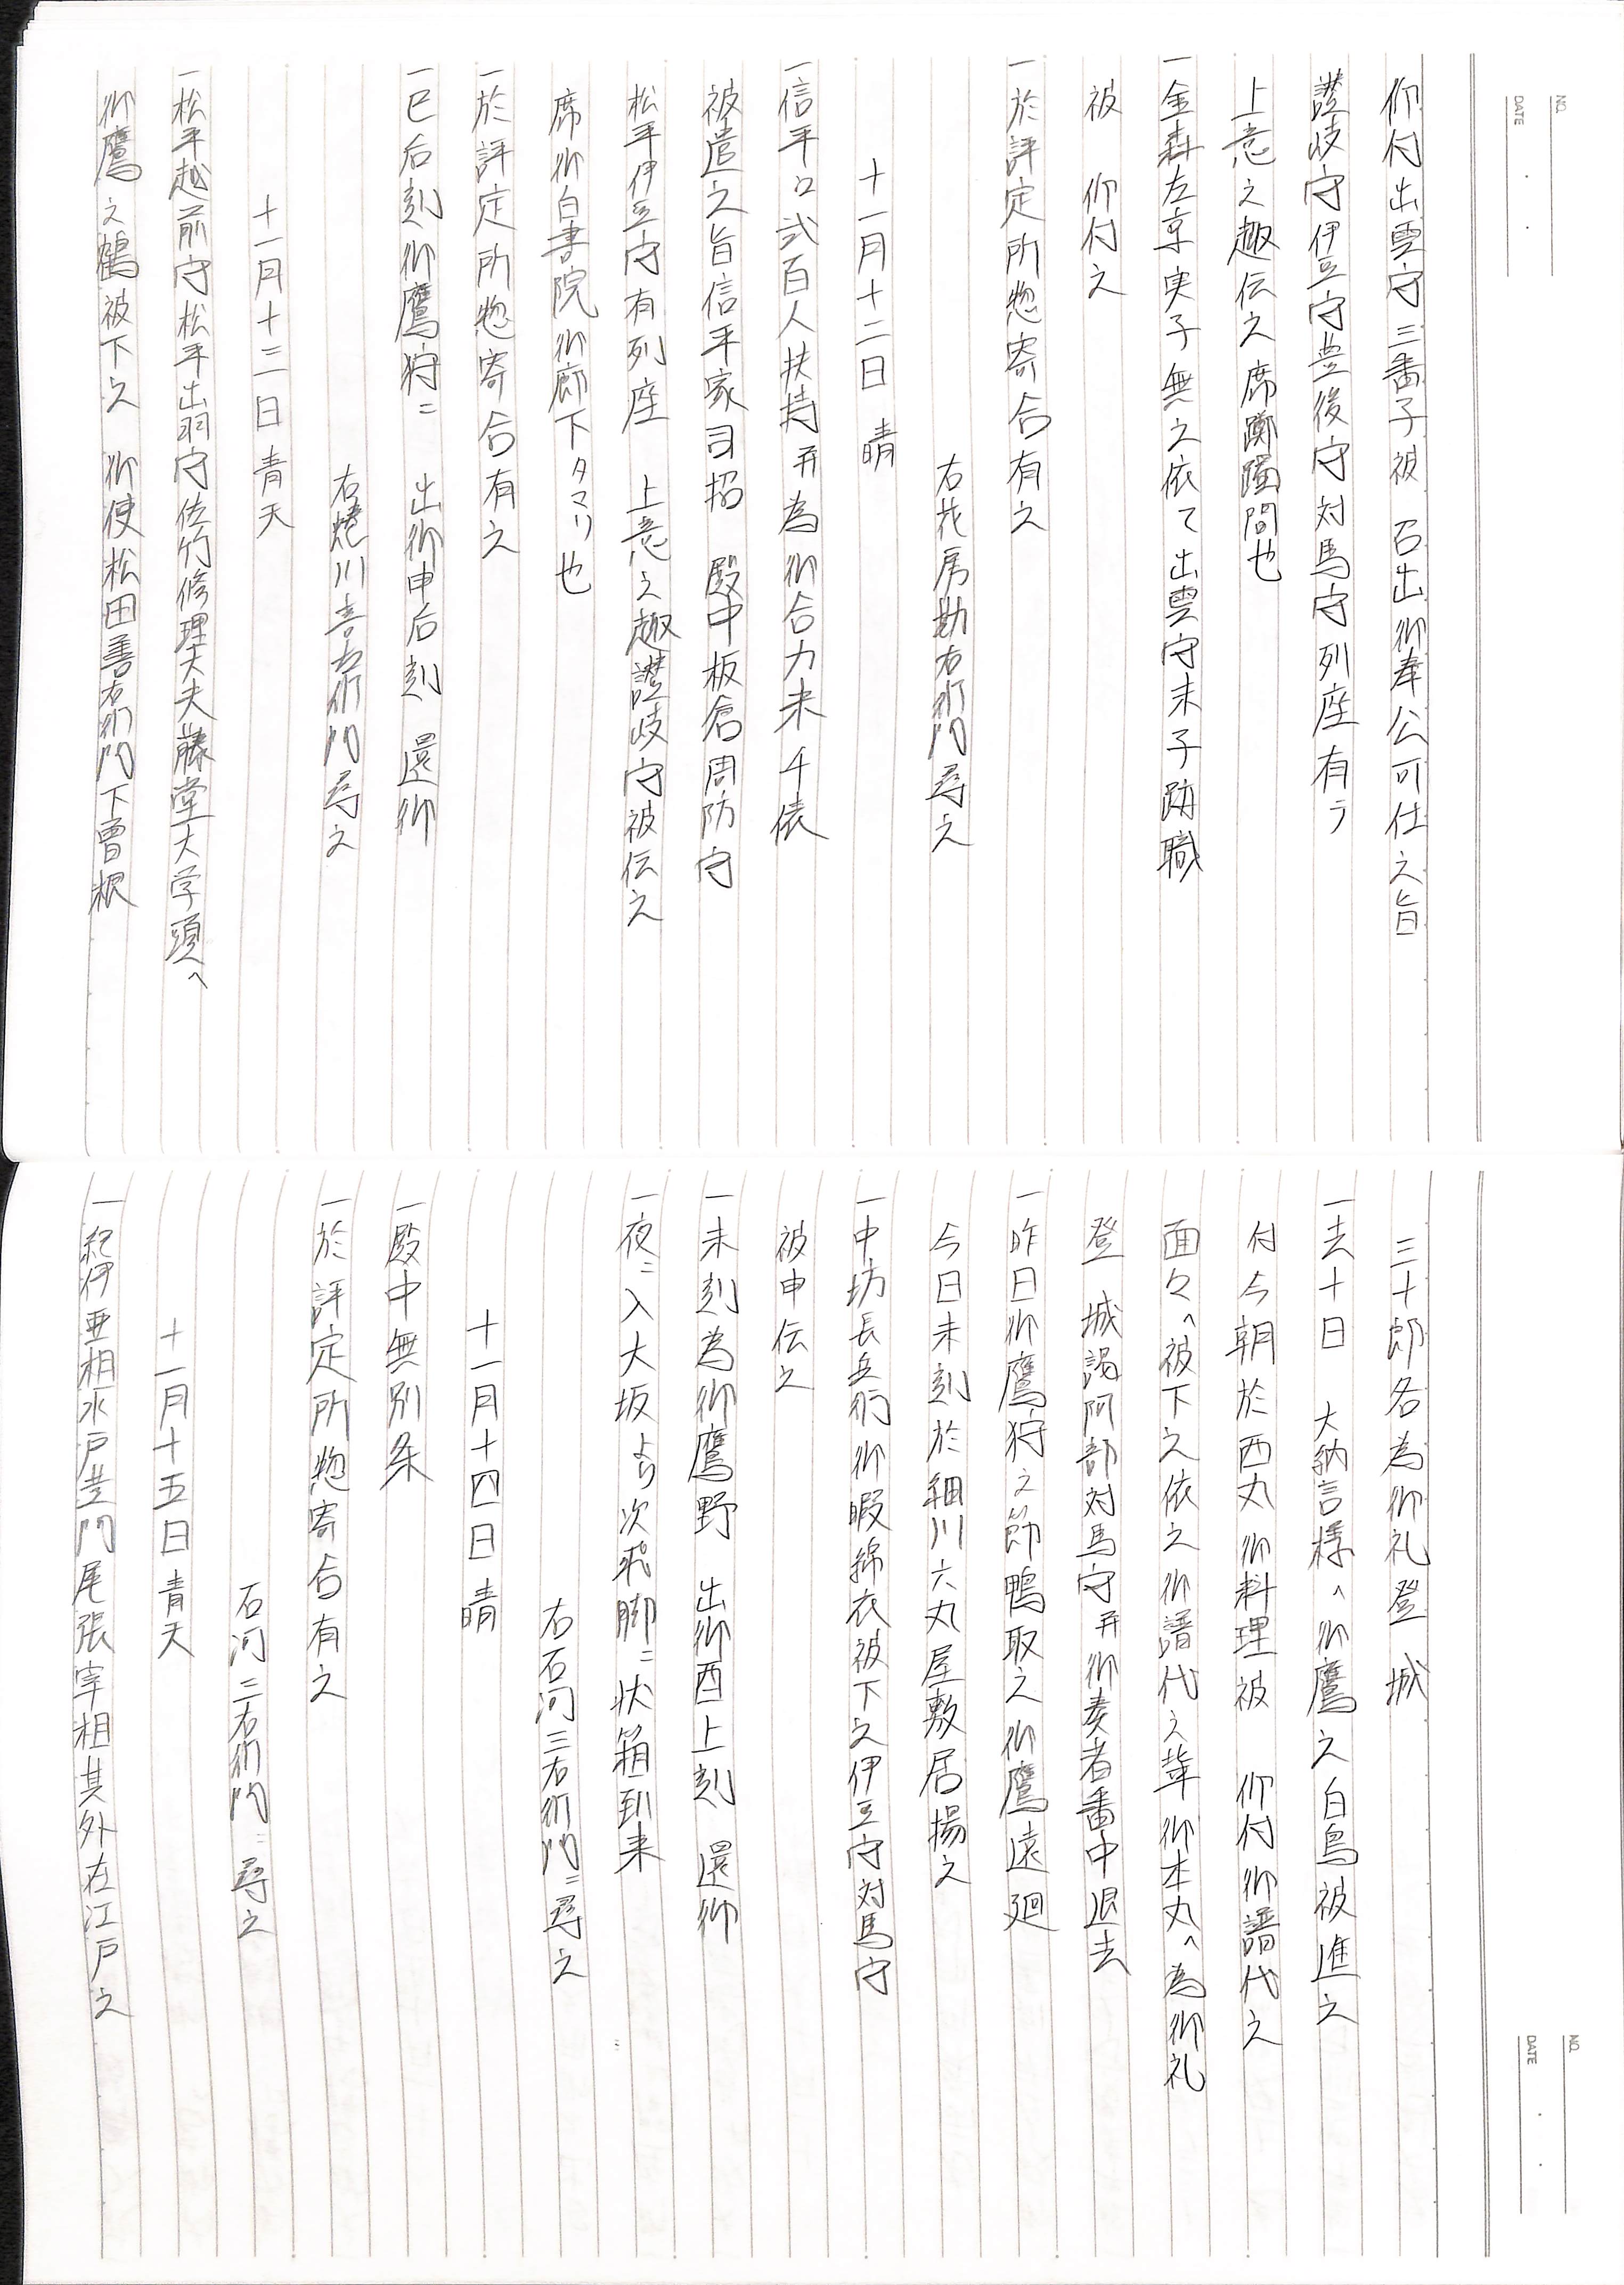 NO.
DATE
仰付出雲守三番子被　召出御奉公可仕之旨
讃岐守伊豆守豊後守対馬守列座有テ
上意之趣伝之席躑躅間也
一金森左京実子無之依て出雲守末子跡職
被　仰付之
一於評定所惣寄合有之
右花房勘右衛門尋之
十一月十二日　晴
一信平ニ弐百人扶持并為御合力米千俵
被遣之旨信平家司招　殿中板倉周防守
松平伊豆守有列座　上意之趣讃岐守被伝之
席御白書院御廊下タマリ也
一於評定所惣寄合有之
一巳后刻御鷹狩ニ　出御申后刻　還御
右蜷川喜左衛門尋之
十一月十三日　青天
一松平越前守松平出羽守佐竹修理大夫藤堂大学頭へ
御鷹之鶴被下之　御使松田善右衛門下曽根
NO.
DATE
三十郎各為御礼登　城
一去十日　大納言様へ御鷹之白鳥被進之
付今朝於西丸御料理被　仰付御譜代之
面々へ被下之依之御譜代之輩御本丸へ為御礼
登　城謁阿部対馬守并御奏者番中退去
一昨日御鷹狩之節鴨取之御鷹遠廻
今日未刻於細川六丸屋敷居揚之
一中坊長兵衛御暇綿衣被下之伊豆守対馬守
被申伝之
一未刻為御鷹野　出御酉上刻　還御
一夜ニ入大坂より次飛脚ニ状箱到来
右石河三右衛門ニ尋之
十一月十四日　晴
一殿中無別条
一於評定所惣寄合有之
石河三右衛門ニ尋之
十一月十五日　青天
一紀伊亜相水戸黄門尾張宰相其外在江戸之